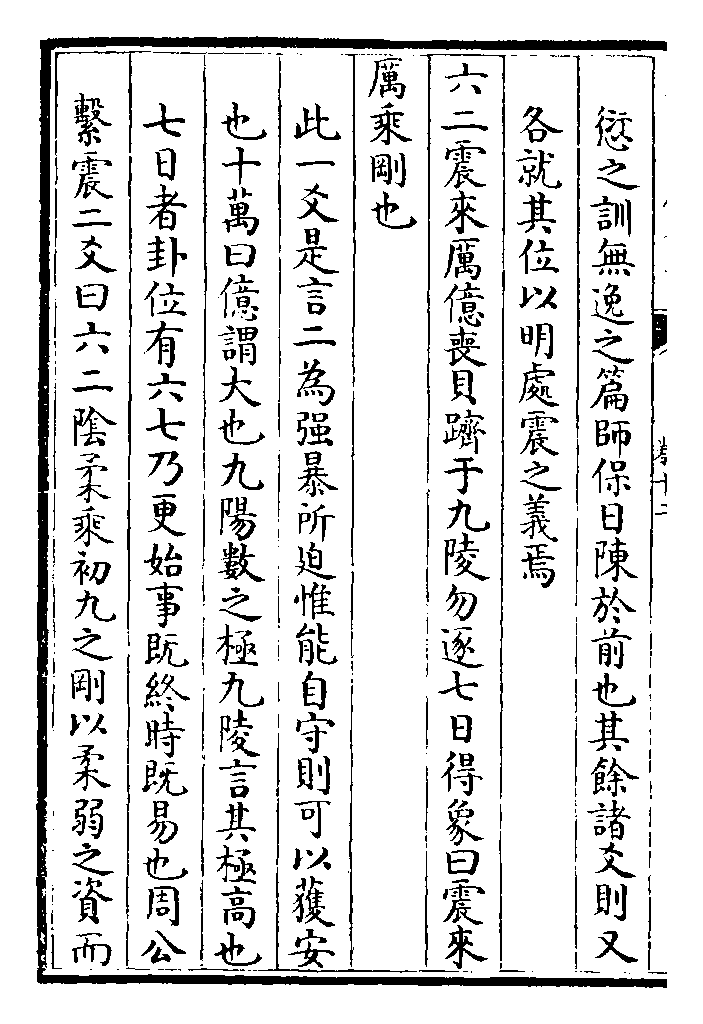 愆之訓無逸之篇師保日陳於前也其餘諸爻則又
各就其位以明處震之義焉
六二震來厲億喪貝躋于九陵勿逐七日得象曰震來
厲乘剛也
此一爻是言二為强暴所迫惟能自守則可以獲安
也十萬曰億謂大也九陽數之極九陵言其極高也
七日者卦位有六七乃更始事既終時既易也周公
繫震二爻曰六二陰柔乘初九之剛以柔弱之資而